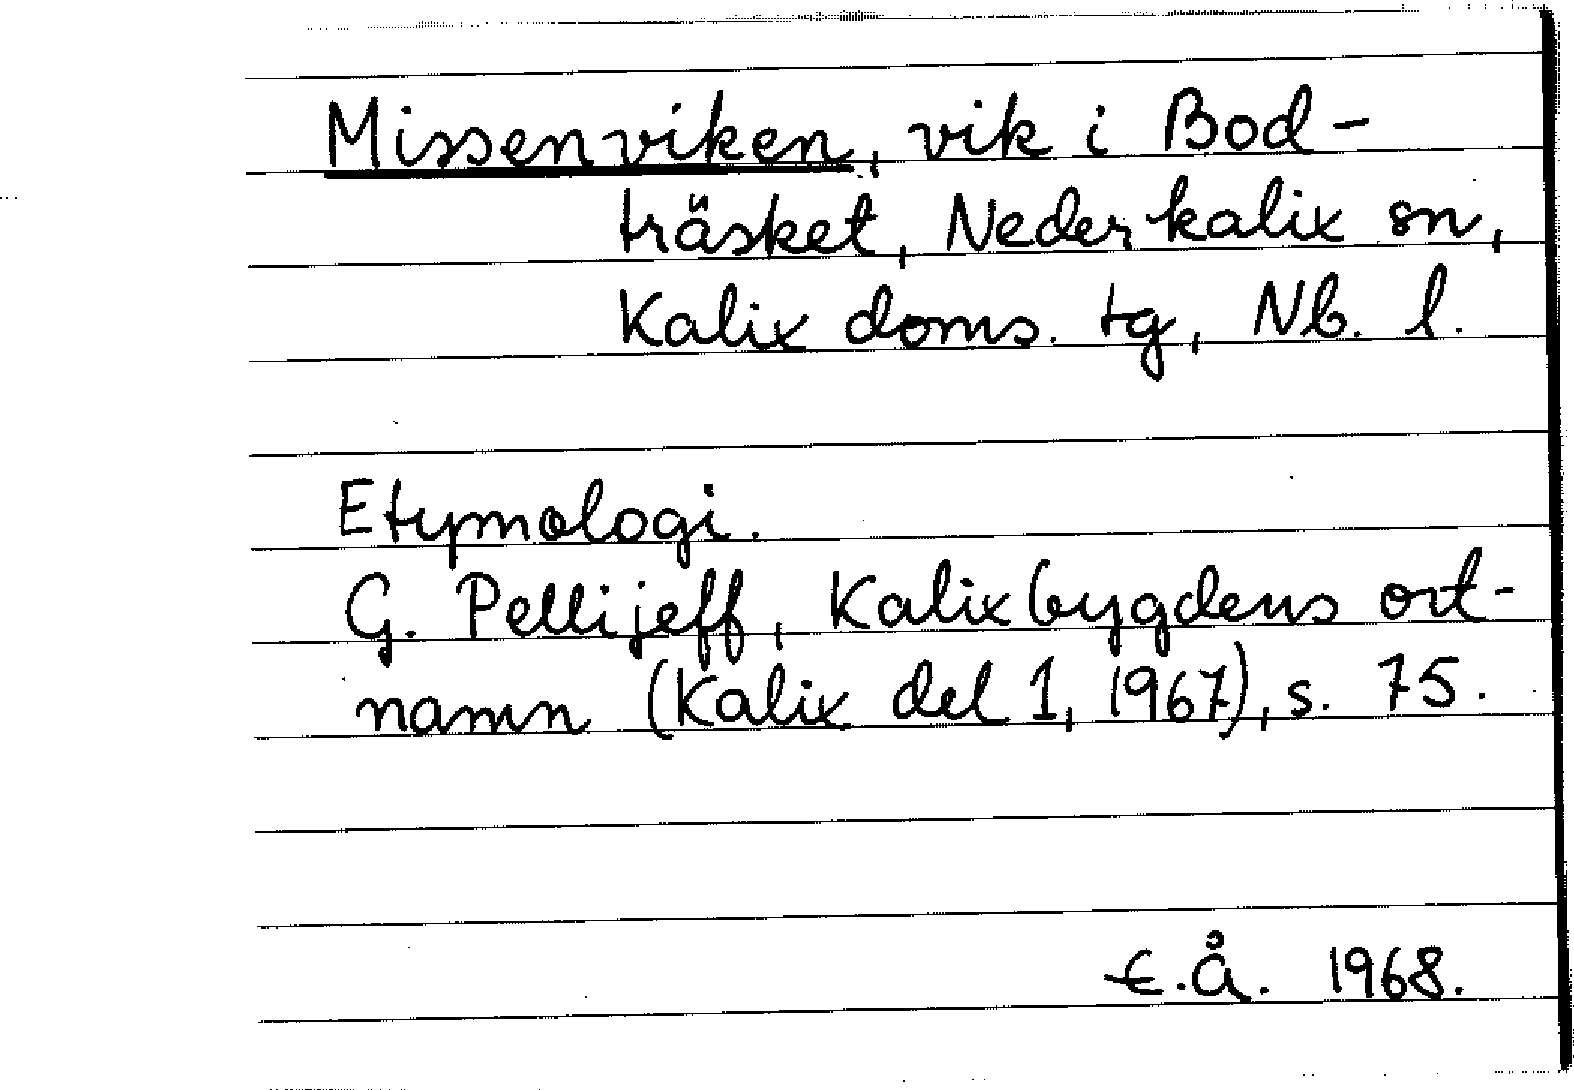 Missenviken, vik i Bod-
träsket, Nederkalix sn,
Kalix doms. tg, Nb. l.
Etymologi.
G. Pellijeff, Kalixbygdens ort-
namn (Kalix del 1, 1967), s. 75.
E.Å. 1968.